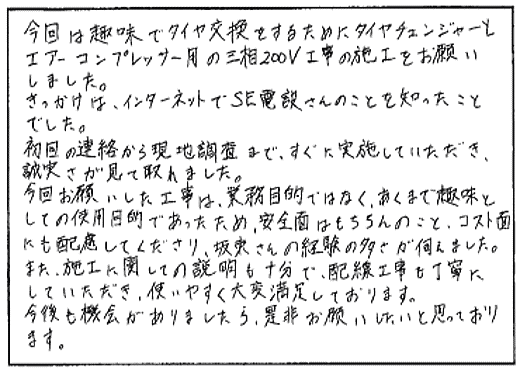 今回は趣味でタイヤ交換をするためにタイヤチェンジャーと
エアーコンプレッサー用の三相200V工事の施工をお願い
しました。
きっかけは、インターネットでSE電設さんのことを知ったこと
でした。
初回の連絡から現地調査まで、すぐに実施していただき、
誠実さが見て取れました。
今回お願いした工事は、業務目的ではなく、あくまで趣味と
しての使用目的であったため、安全面はもちろんのこと、コスト面
にも配慮してくださり、坂東さんの経験の多さが伺えました。
また、施工に関しての説明も十分で、配線工事も丁寧に
していただき、使いやすく大変満足しております。
今後も機会がありましたら、是非お願いしたいと思っており
ます。